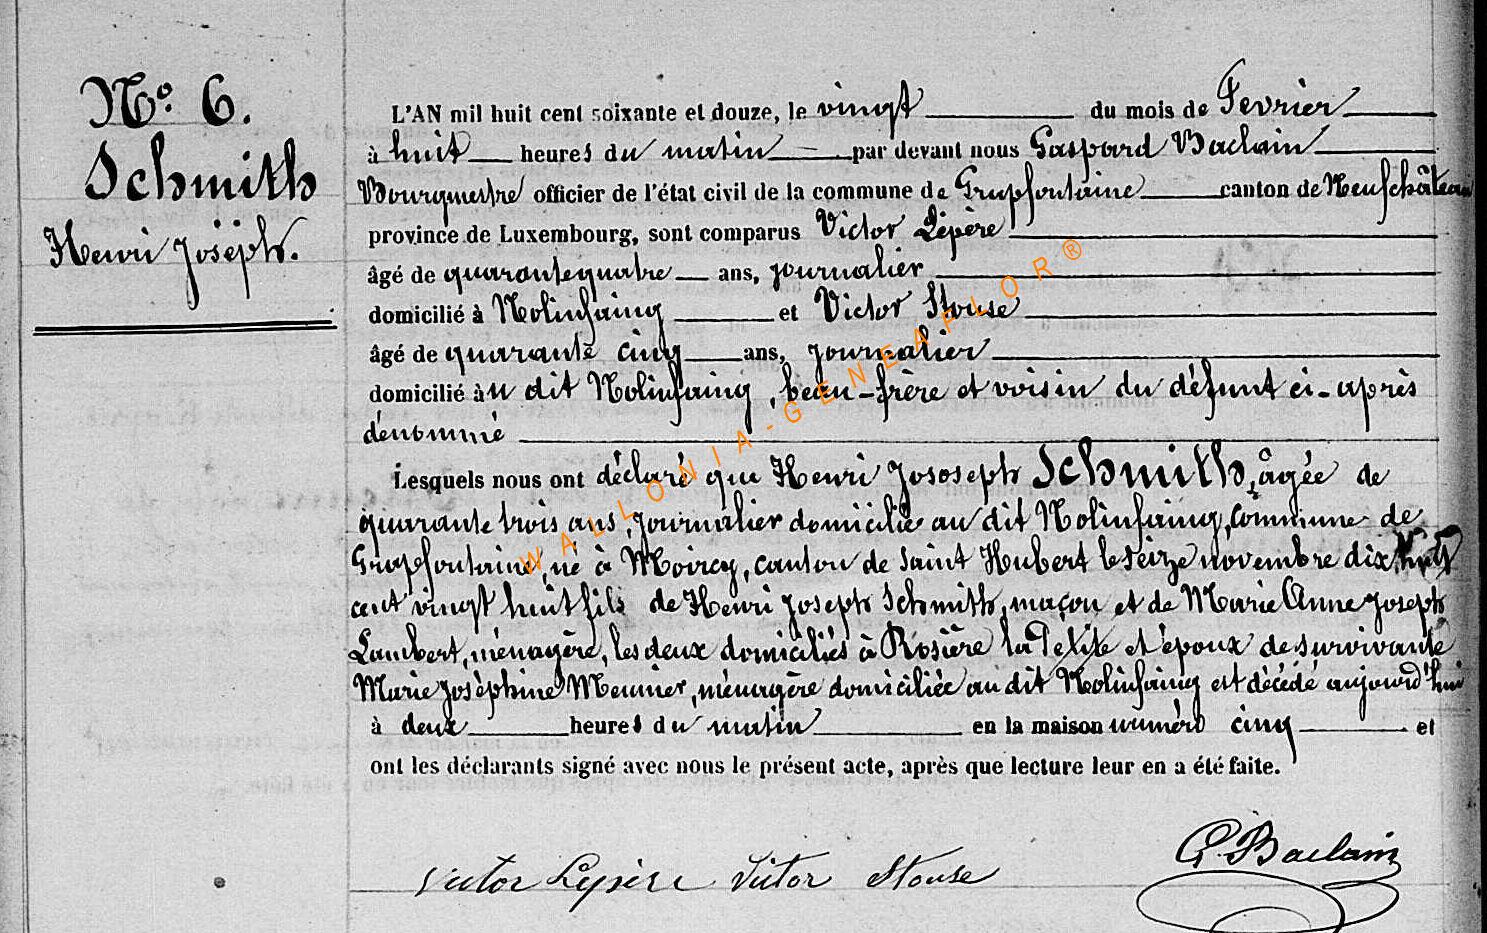 N° 6.
Schmith
Henri Joséph.
L'AN mil huit cent soixante et douze, le vingt du mois de Fevrier
à huit heures du matin par devant nous Gaspard Baclain
Bourgmestre officier de l'état civil de la commune de Grapfontaine canton de Neufchâteau
province de Luxembourg, sont comparus Victor Lépère
âgé de quarantequatre ans, journalier
domicilié à Nolinfaing et Victor Stouse
âgé de quarante cinq ans, journalier
domicilié àu dit Nolinfaing, beau-frère et voisin du défunt ci-après
dénommé
Lesquels nous ont déclaré que Henri Jososeph Schmith, âgée de
quarante trois ans, journalier domicilié au dit Nolinfaing, commune de
Grapfontaine, né à Moircy, canton de Saint Hubert le seize novembre dix huit
cent vingt huit fils de Henri Joseph Schmith, maçon et de Marie Anne Joseph
Lambert, ménagère, les deux domiciliés à Rosière la Petite et époux de survivante
Marie Joséphine Meunier, ménagère domiciliée au dit Nolinfaing est décédé aujourd'hui
à deux heures du matin en la maison numéro cinq et
ont les déclarants signé avec nous le présent acte, après que lecture leur en a été faite.
Victor Lepère Victor Stouse G. Baclain
WALLONIA-GENEAFLOR®